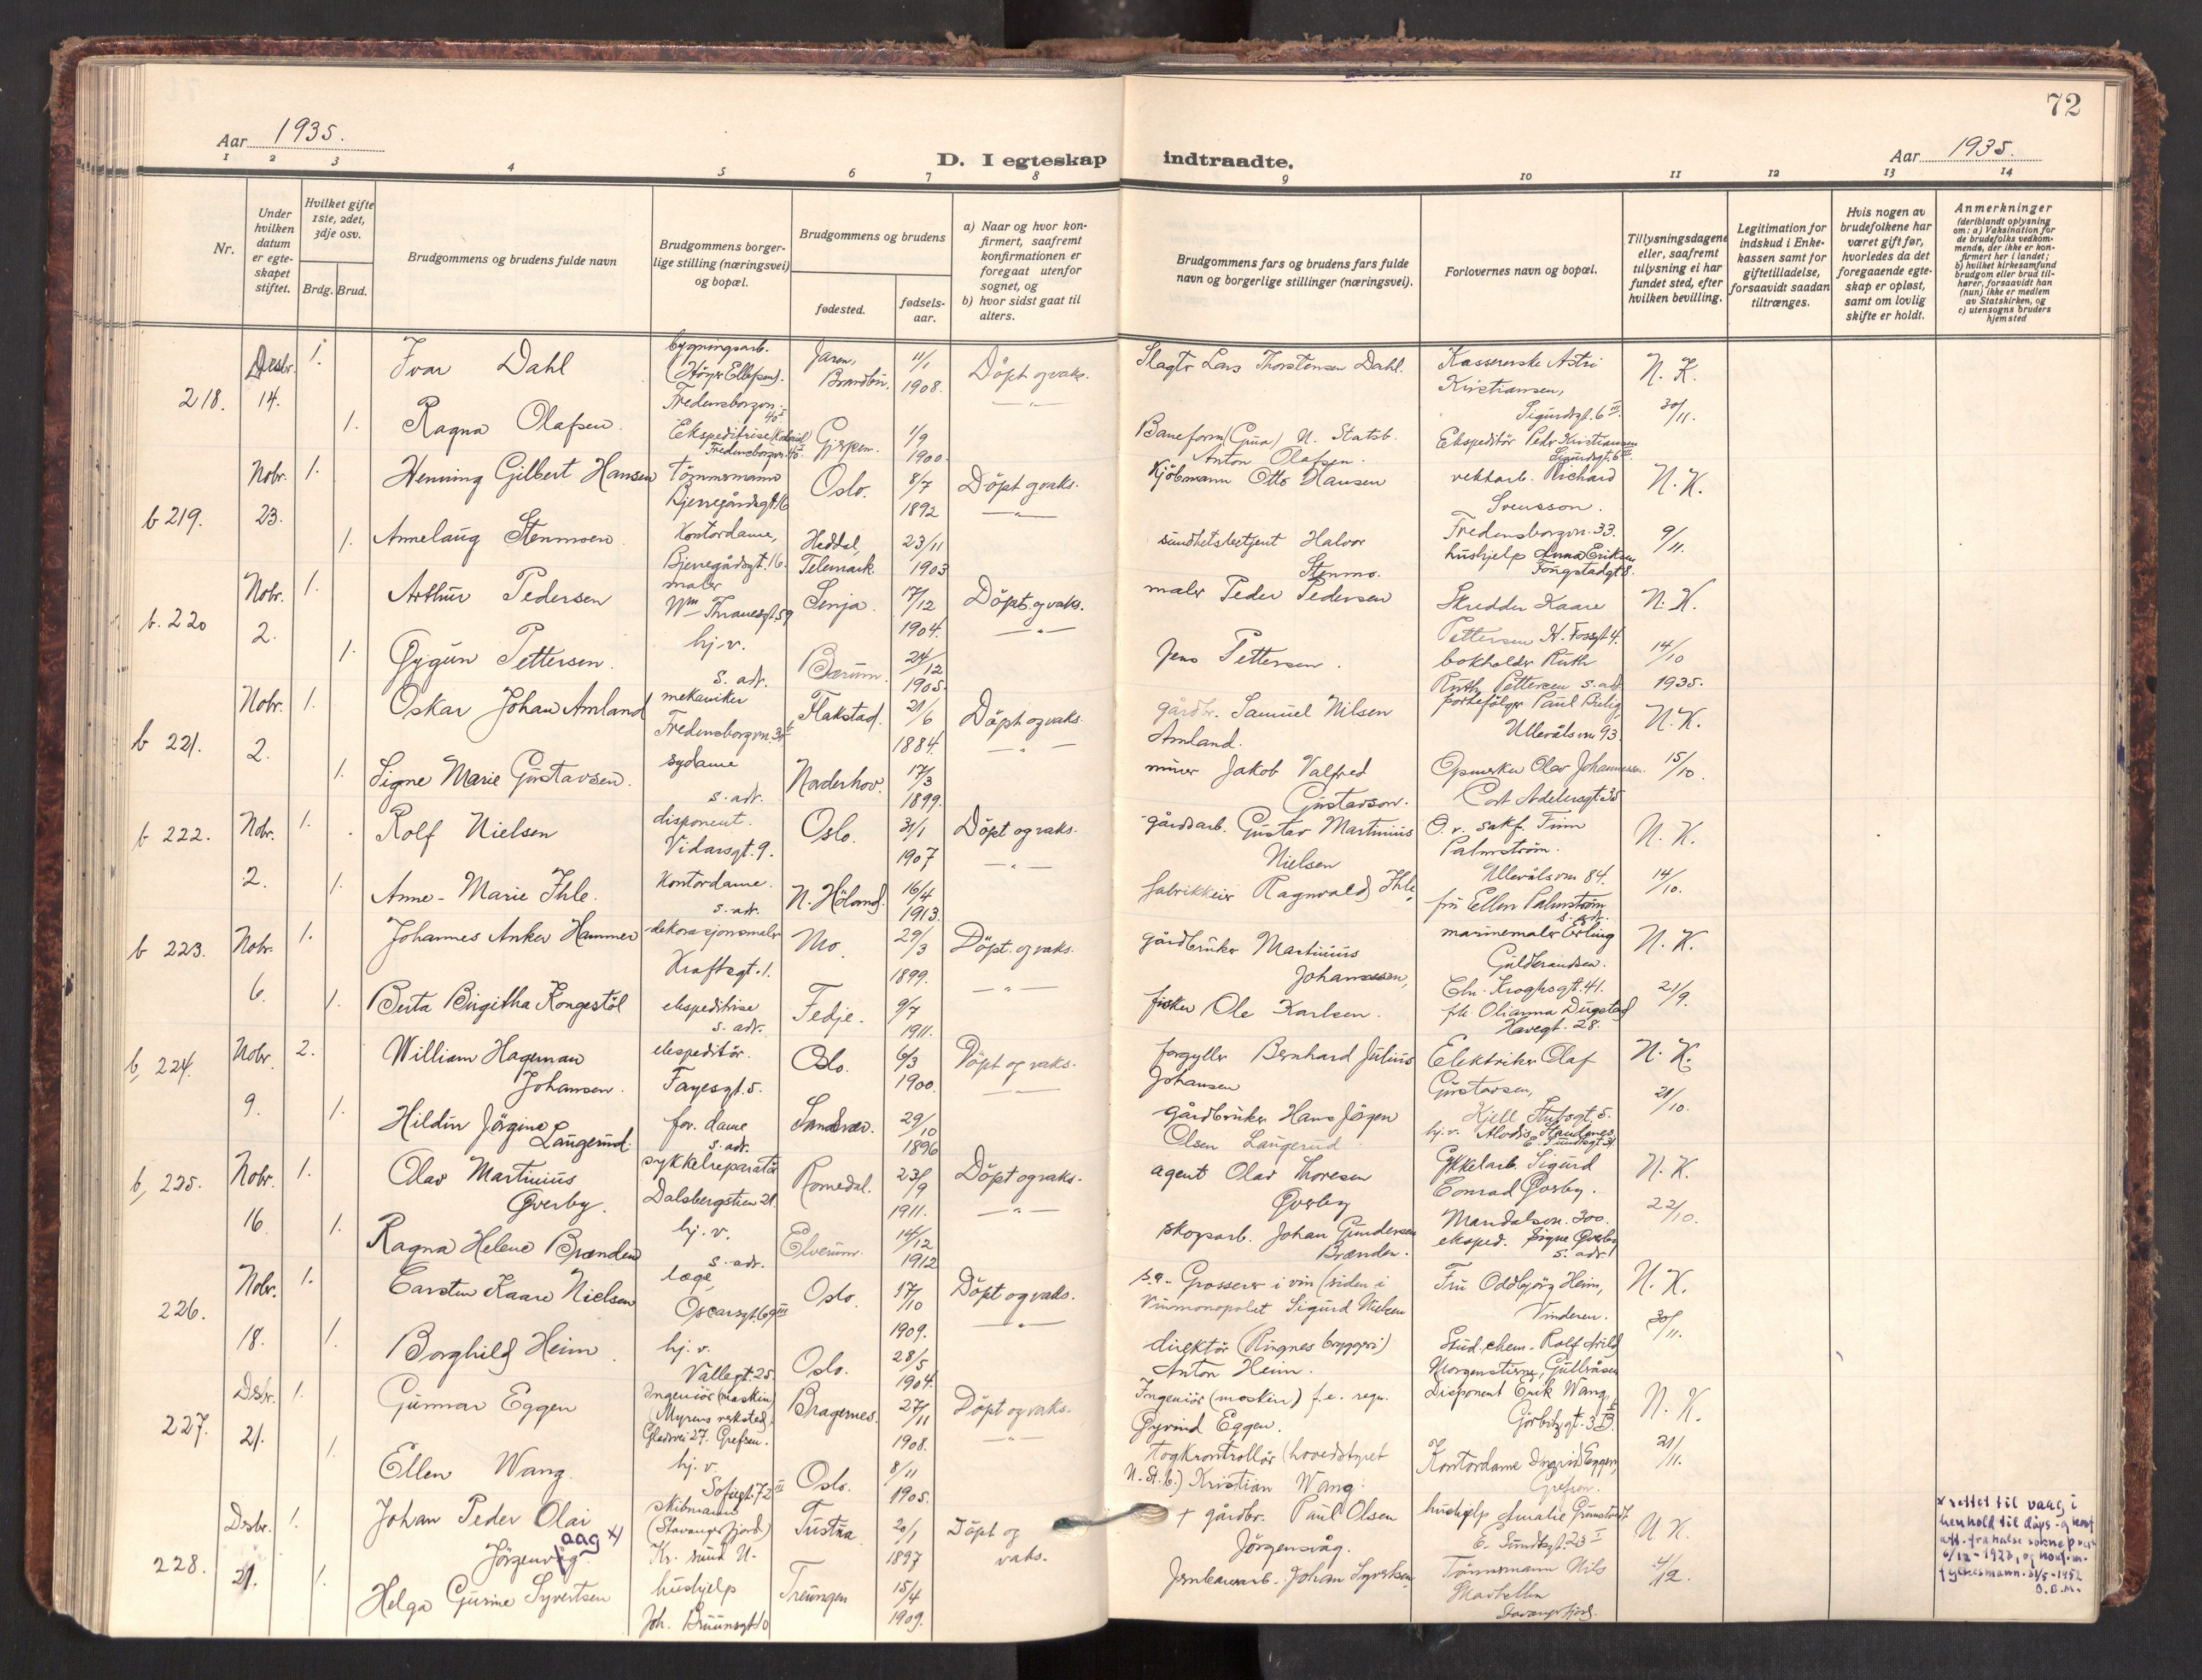 72
Aar 1935.
D. I egteskap indtraadte.
Aar 1935.
1 2 3 4 5 6 7 8 9 10 11 12 13 14
Nr.
Under hvilken datum er egteskapet stiftet.
Hvilket gifte 1ste, 2det, 3dje osv.
Brdg. Brud.
Brudgommens og brudens fulde navn
Brudgommens borgerlige stilling (næringsvei) og bopæl.
Brudgommens og brudens
fødested.
fødselsaar.
a) Naar og hvor konfirmert, saafremt konfirmationen er foregaat utenfor sognet, og
b) hvor sidst gaat til alters.
Brudgommens fars og brudens fars fulde navn og borgerlige stillinger (næringsvei).
Forlovernes navn og bopæl.
Tillysningsdagene eller, saafremt tillysning ei har fundet sted, efter hvilken bevilling.
Legitimation for indskud i Enkekassen samt for giftetilladelse, forsaavidt saadan tiltrænges.
Hvis nogen av brudefolkene har været gift før, hvorledes da det foregaaende egteskap er opløst, samt om lovlig skifte er holdt.
Anmerkninger
(deriblandt oplysning om: a) Vaksination for de brudefolks vedkommende, der ikke er konfirmert her i landet; b) hvilket kirkesamfund brudgom eller brud tilhører, forsaavidt han (hun) ikke er medlem av Statskirken, og c) utensogns bruders hjemsted
218. Desbr. 14. 1. Ivar Dahl bygningsarb. (Høyer Ellefsen). Fredensborgvn. 40 I Jaren, Brandbu. 11/1 1908. Døpt og vaks. Slagter Lars Thorstensen Dahl. Kassererske Astri Kristiansen, Sigurdsgt. 6 III. N. K.
1. Ragna Olafsen. Ekspeditrise Fredensborgvn. 40 I. Gjerpen. 1/9 1900. —"— Baneform. (Grua) N. Statsb. Anton Olafsen. Ekspeditør Peder Kristiansen Sigurdsgt. 6 III. 30/11.
b 219. Nobr. 23. 1. Henning Gilbert Hansen tømmermann Bjerregårdsgt. 16 Oslo. 8/7 1892 Døpt og vaks. Kjøbmann Otto Hansen verktarb. Richard Svensson. Fredensborgvn. 33. N. K.
1. Annelaug Stenmoen Kontordame, Bjerregårdsgt. 16. Heddal, Telemark. 23/11 1903 —"— sundhetsbetjent Halvor Stenmo. hushjelp Anna Eriksen Tougstadgt 8. 9/11.
b. 220 Nobr. 2. 1. Arthur Pedersen maler Wm Thranesgt. 59 Senja. 17/12 1904. Døpt og vaks. maler Peder Pedersen Skredder Kaare Pettersen N. Fossgt 4. N. K.
1. Gygun Pettersen. hj. v. s. adr. Bærum. 24/12 1905. —"— Jens Pettersen. bokholder Ruth Ruth Pettersen s. adr 14/10 1935.
b 221. Nobr. 2. 1. Oskar Johan Amland mekaniker Fredensborgvn. Flakstad. 21/6 1884. Døpt og vaks. gårdbr. Samuel Nilsen Amland. portefølger Paul Bielig, Ullevålsvn 93. N. K.
1. Signe Marie Gustavsen. sydame s. adr. Norderhov. 17/3 1899. —"— murer Jakob Valfred Gustavson. Opmerker Olav Johannessen. Cort Adelersgt 35 15/10.
b 222. Nobr. 2. 1. Rolf Nielsen disponent. Vidarsgt. 9. Oslo. 31/1 1907 Døpt og vaks. gårdsarb. Gustav Martinius Nielsen O. r. sakf. Finn Palmstrøm. Ullevålsvn 84. N. K.
1. Anne-Marie Ihle. Kontordame. s. adr. N. Høland. 16/4 1913. —"— fabrikkeier Ragnvald Ihle, fru Ellen Palmstrøm s. adr. 14/10.
b 223. Nobr. 6. 1. Johannes Anker Hammer dekorasjonsmaler Kraftsgt. 1. Mo. 29/3 1899. Døpt. og vaks. gårdbruker Martinius Johannesen, marinemaler Erling Guldbrandsen. Chr. Kroghsgt. 41. N. K.
1. Berta Birgitha Kongestøl ekspeditrise s. adr. Fedje. 9/7 1911. —"— fisker Ole Karlsen. frk. Olianna Dingstad Havegt. 28. 21/9.
b, 224. Nobr. 9. 2. William Hageman Johansen. ekspeditør. Fayesgt. 5. Oslo. 6/3 1900. Døpt og vaks. forgyller Bernhard Julius Johansen Elektriker Olaf Gustavsen, Kjell Stubsgt, 5. N. K.
1. Hildur Jørgine Laugerud. forr. dame s. adr. Sandsvær. 29/10 1896 —"— gårdbruker Hans Jørgen Olsen Laugerud hj. v. Alvdis E. Sundtsgt 31. 21/10.
b, 225. Nobr. 16. 1. Olav Martinius Øverby. sykkelreparatør Dalsbergstien 21. Romedal. 23/9 1911. Døpt og vaks. agent Olav Thoresen Øverby Cykkelarb. Sigurd Conrad Øverby. Maridalsvn. 300. N. K.
1. Ragna Helene Brænden hj. v. s. adr. Elverum. 14/12 1912 —"— skogsarb. Johan Gundersen Brænden. eksped. Signe Øverby s. adr. 22/10.
226. Nobr. 18. 1. Carsten Kaare Nielsen læge, Oscarsgt. 69 III Oslo. 17/10 1909. Døpt og vaks. Grosserer i vin (siden i Vinmonopolet Sigurd Nielsen Fru Oddbjørg Heim, Vinderen. N. K.
1. Borghild Heim. hj. v. Vallegt. 25. Oslo. 28/5 1904. —"— direktør (Ringnes bryggeri) Anton Heim. Stud. chem. Rolf Arild Morgenstierne, Gullråsen 30/11.
227. Dsbr. 21. 1. Gunnar Eggen Ingeniør (maskin) (Myrens verksted) Gladsvei 27. Grefsen. Bragernes. 27/11 1908. Døpt og vaks. Ingeniør (maskin) f. e. regn. Øyvind Eggen. Disponent Erik Wang, Gørbitzgt. 3 N. K.
1. Ellen Wang. hj. v. Sofiegt. 72 III Oslo. 8/11 1905. —"— Togkontrollør (hovedstyret N. St. b.) Kristian Wang. Kontordame Ingrid Eggen, Grefsen. 21/11.
228. Dsbr. 21. 1. Johan Peder Olai Jørgenvåg aag x) skibmann (Stavangerfjord) Kr. sund N. Tustna 20/1 1897 Døpt og vaks. + gårdbr. Paul Olsen Jørgensvåg. hushjelp Amalie Grimstvedt E. Sundtsgt. 23 I N K.
1. Helga Gurine Syvertsen hushjelp Joh. Bruunsgt 10 Treungen 15/4 1909. Jernbanearb. Johan Syvertsen, Tømmermann Nils Skarhellen Stavangerfjord. 4/12.
x rettet til vaag i henhold til dåps- og konf att. fra halsa sokneprest 6/12-1923, og konf. m. fylkesmann. 31/5-1952 O.B.M.